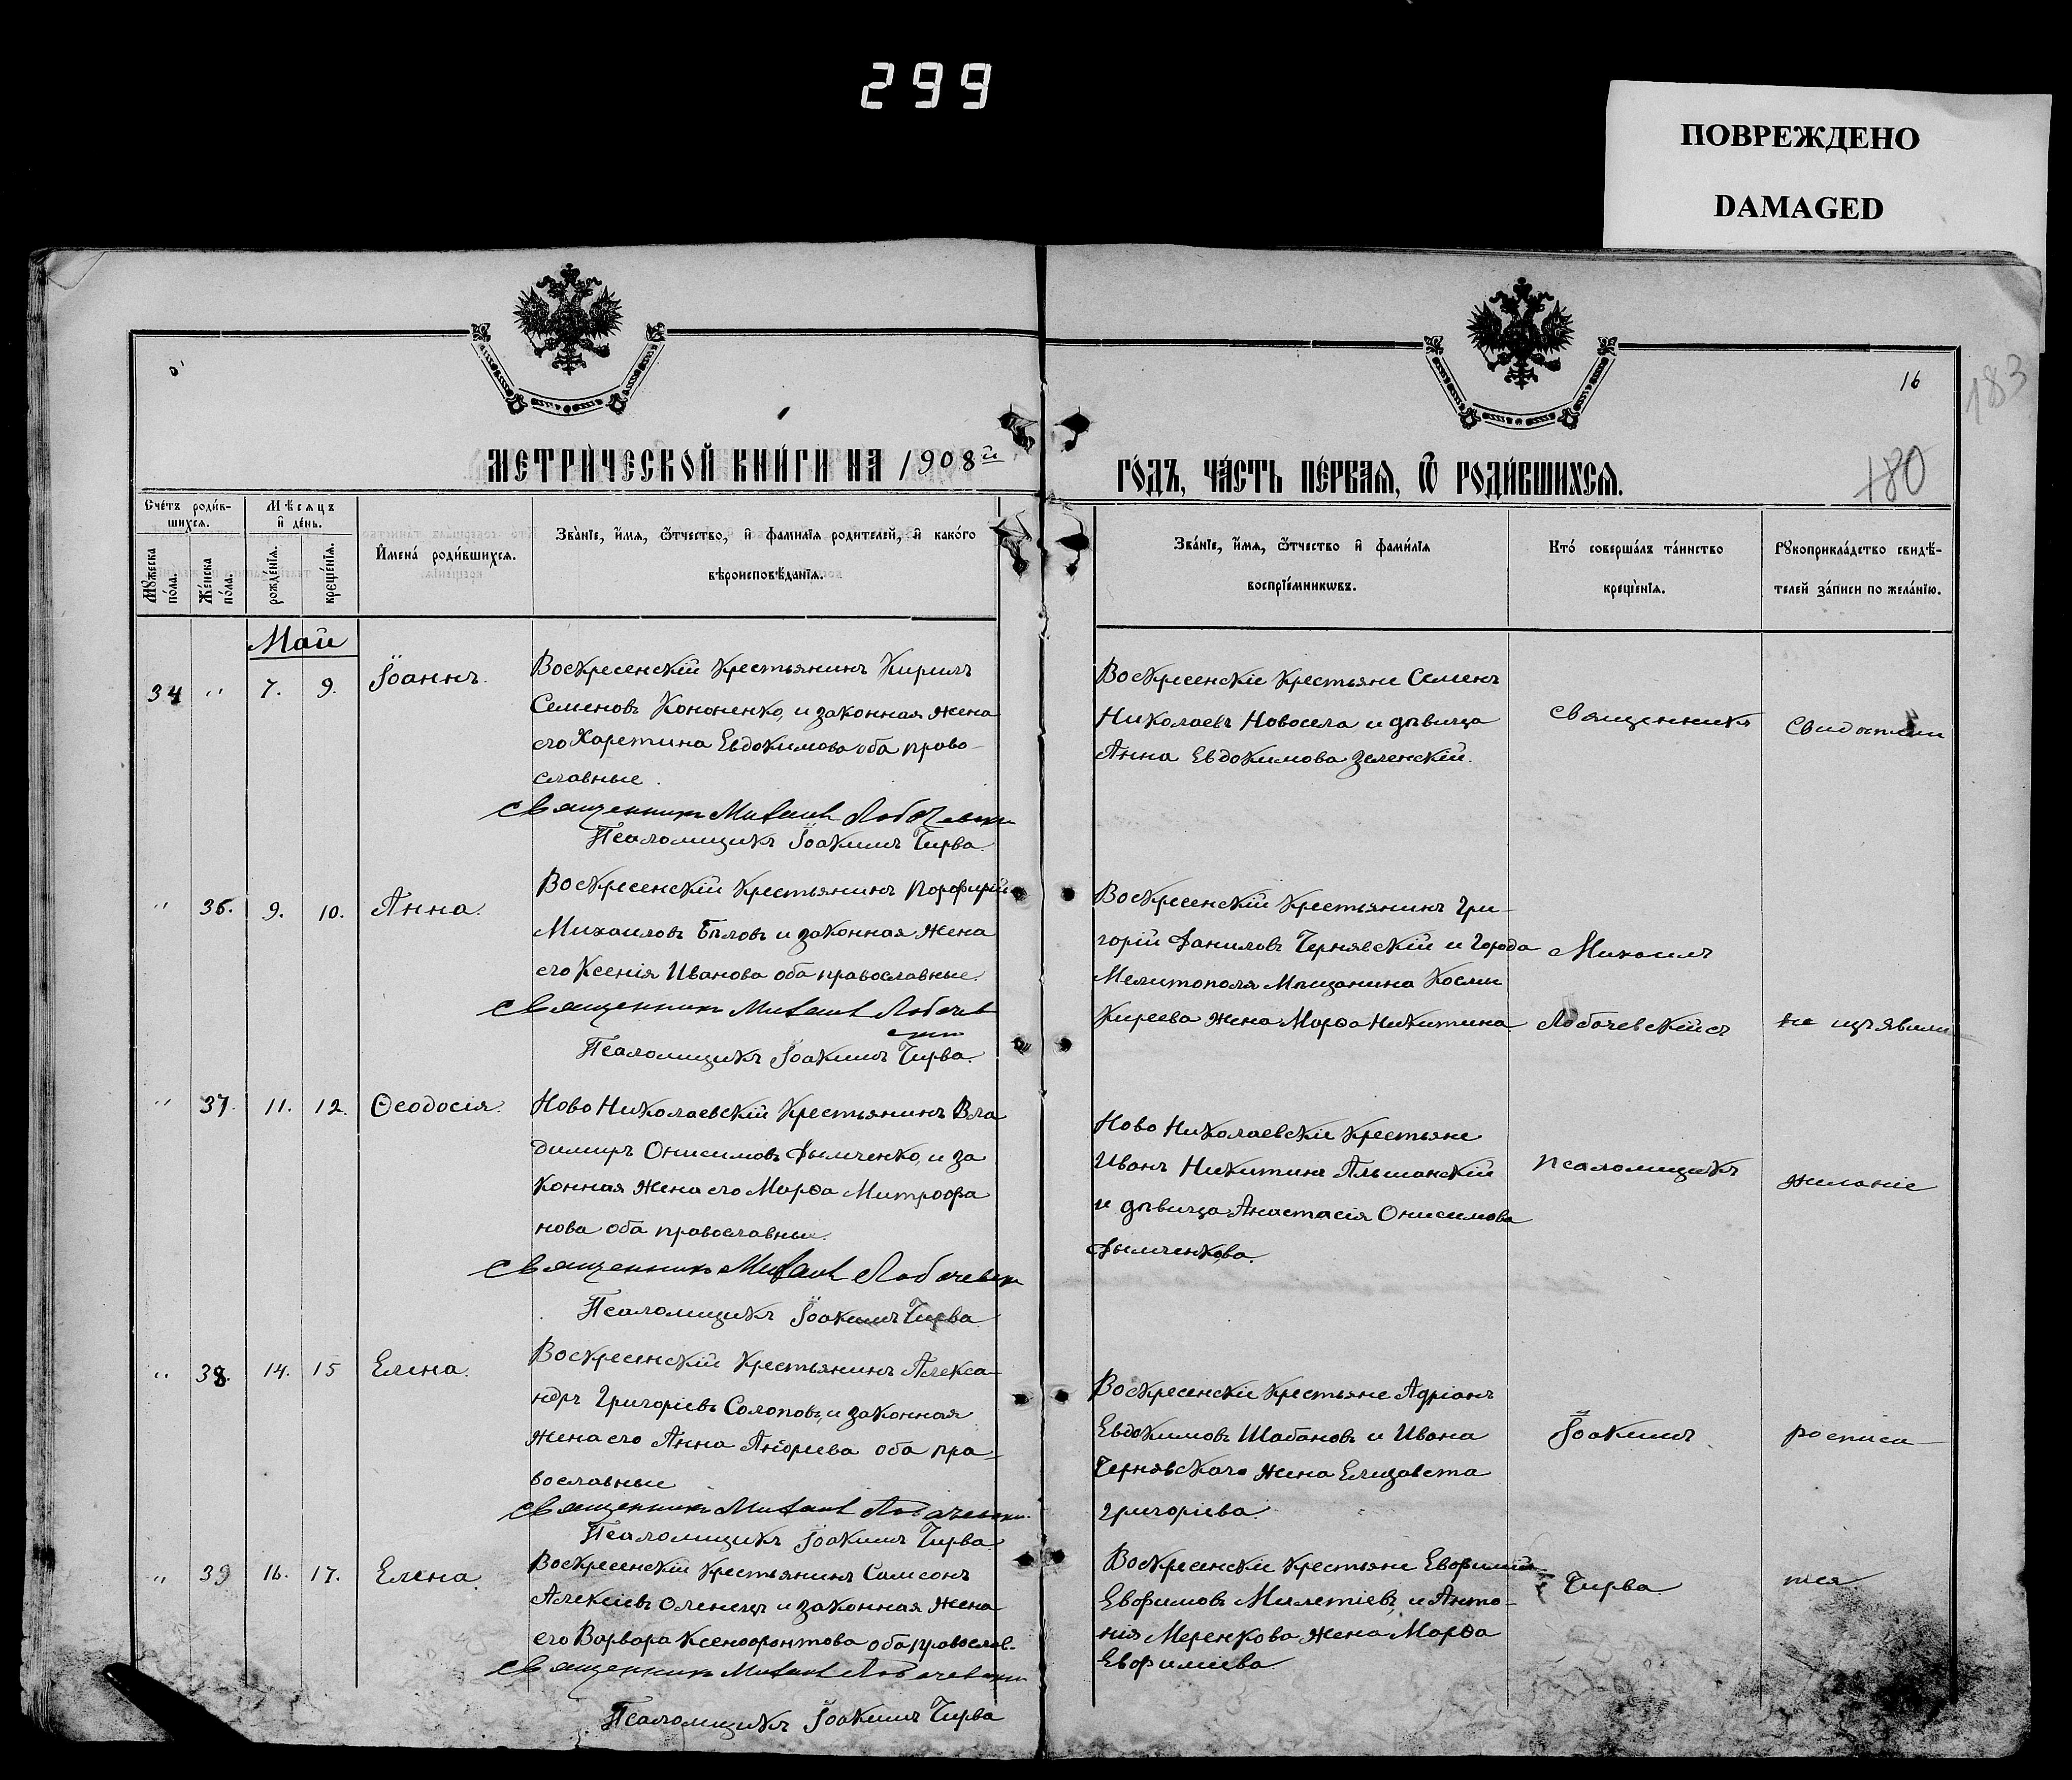 299
ПОВРЕЖДЕНО
DAMAGED
16
183
180
МЕТРИ́ЧЕСКОЙ КНИ́ГИ НА 1908й
ГО́ДЪ, ЧА́СТЬ ПЕ́РВАЯ, Ѡ РОДИ́ВШИХСЯ.
Сче́тъ роди́в-
шихся.
Мѣсяцъ
и де́нь.
Мꙋжеска
по́ла.
Же́нска
по́ла.
рожде́нїѧ.
креще́нїѧ.
Имена́ роди́вшихся.
Зва́нїе, и́мя, ѻ҆́тчество, и фами́лїя родителей, и како́го
вѣроисповѣ́данїя.
Зва́нїе, и́мя, ѻ҆́тчество и фами́лїя
воспрїе́мникѡвъ.
Кто́ соверша́лъ та́инство
креще́нїя.
Рꙋкоприкла́дство свидѣ́-
телей за́писи по жела́нїю.
Май
34 " 7. 9. Іоаннъ.
Воскресенскій крестьянинъ Кирилъ
Семеновъ Кононенко, и законная жена
его Харетина Евдокимова оба право-
славные.
Священникъ Михаилъ Лобачевски
Псаломщикъ Іоакимъ Чирва.
Воскресенскіе крестьяне Семенъ
Николаевъ Новосела и дѣвица
Анна Евдокимова Зеленскій.
Священникъ
Свидѣтели
" 36. 9. 10. Анна.
Воскресенскій крестьянинъ Порфирій
Михаиловъ Бѣловъ и законная жена
его Ксенія Иванова оба православные.
Священникъ Михаилъ Лобачев
ски
Псаломщикъ Іоакимъ Чирва.
Воскресенскій крестьянинъ Гри-
горій Даниловъ Чернявскій и города
Мелитополя Мѣщанина Космы
Киреева жена Марѳа Никитина
Михаилъ
Лобачевскій съ
не изъявили
" 37. 11. 12. Ѳеодосія.
Ново Николаевскій крестьянинъ Вла
димиръ Онисимовъ Дымченко, и за
конная жена его Марѳа Митрофа
нова оба православные.
Священникъ Михаилъ Лобачевски
Псаломщикъ Іоакимъ Чирва
Ново Николаевскіе крестьяне
Иванъ Никитинъ Альшанскій
и дѣвица Анастасія Онисимова
Дымченкова.
псаломщикъ
желаніе
" 38. 14. 15 Елена.
Воскресенскій крестьянинъ Алекса-
ндръ Григоріевъ Солоповъ, и законная
жена его Анна Андреева оба пра-
вославные
Священникъ Михаилъ Лобачевски.
Псаломщикъ Іоакимъ Чирва.
Воскресенскіе крестьяне Адріанъ
Евдокимовъ Шабановъ и Ивана
Чернявскаго жена Елизавета
Григоріева.
Іоакимъ
росписа
" 39 16. 17. Елена.
Воскресенскій крестьянинъ Самсонъ
Алексіевъ Оленецъ и законная жена
его Варвара Ксенофонтова оба православ.
Священникъ Михаилъ Лобачевски
Псаломщикъ Іоакимъ Чирва
Воскресенскіе крестьяне Евфимій
Евфимовъ Милетіевъ, и Анто-
нія Меренкова жена Марѳа
Евфиміева.
Чирва
тся